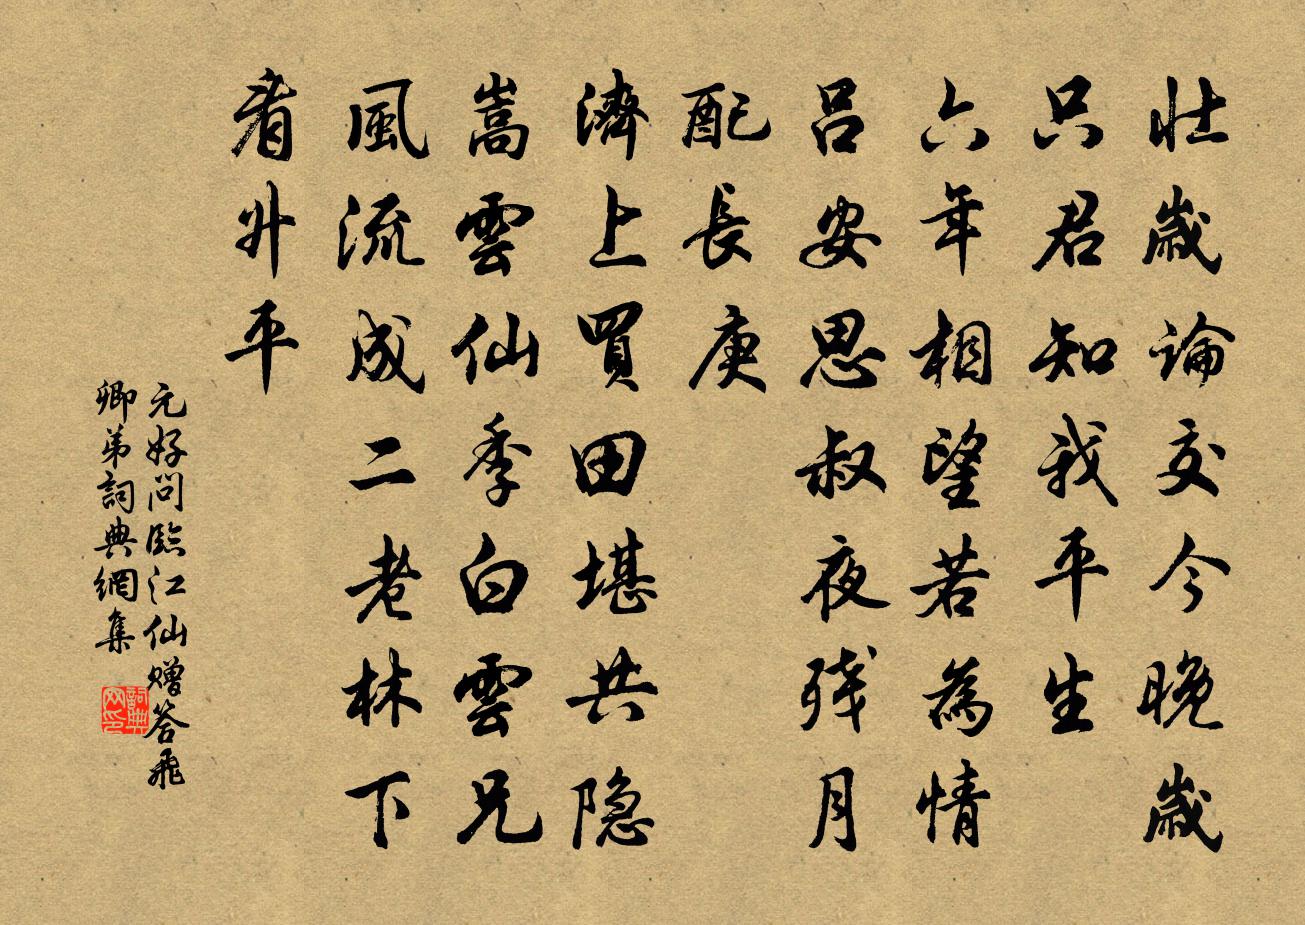 壯歲論交今晚歲
只君知我平生
六年相望若為情
呂安思叔夜残月
配長庚
濟上買田堪共隐
嵩雲仙季白雲兄
風流成二老林下
看升平
元好問臨江仙贈答飛
卿弟詞典網集
詞典网印